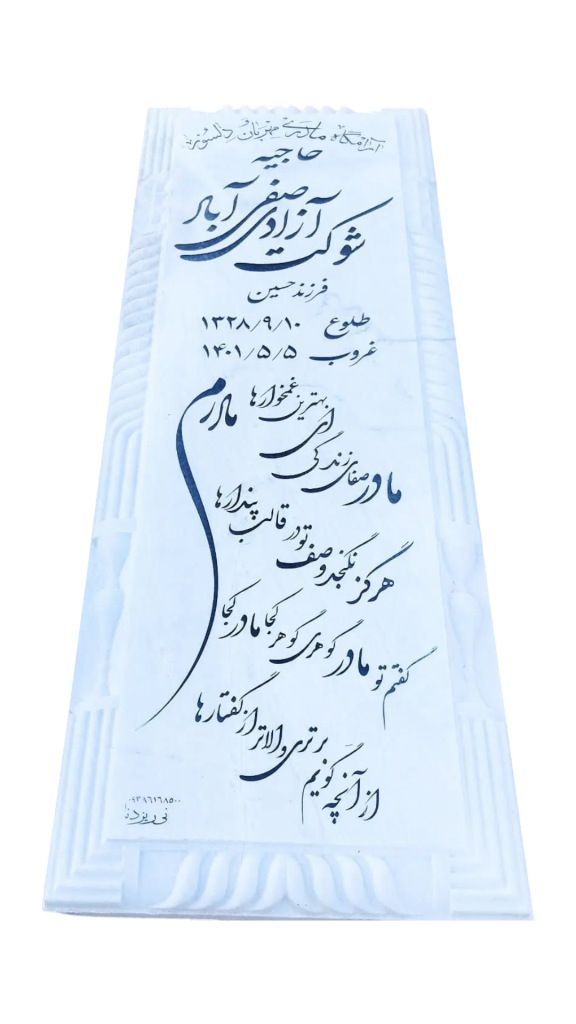 آرامگاه مادری مهربان و دلسوز
حاجیه
شوکت آزادی صفی آباد
فرزند حسین
طلوع ۱۳۲۸/۹/۱۰
غروب ۱۴۰۱/۵/۵
مادرم
مادر صفای زندگی ای بهترین غمخوارها
هرگز نگنجد وصف تو در قالب پندارها
گفتم تو مادر گوهری گوهر کجا مادر کجا
از آنچه گویم برتری والاتر از گفتارها
۰۹۳۸۶۱۶۸۵۰۰